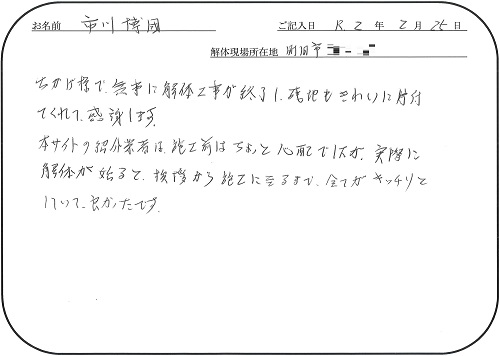 お名前 市川 博國 ご記入日 R.2 年 2 月 25 日
解体現場所在地 別府市
おかげ様で、無事に解体工事が終了し、跡地もきれいに片付
てくれて、感謝します。
本サイトの紹介業者は、施工前はちょっと心配でしたが、実際に
解体が始ると、挨拶から施工に至るまで、全てがキッチリと
していて、良かったです。